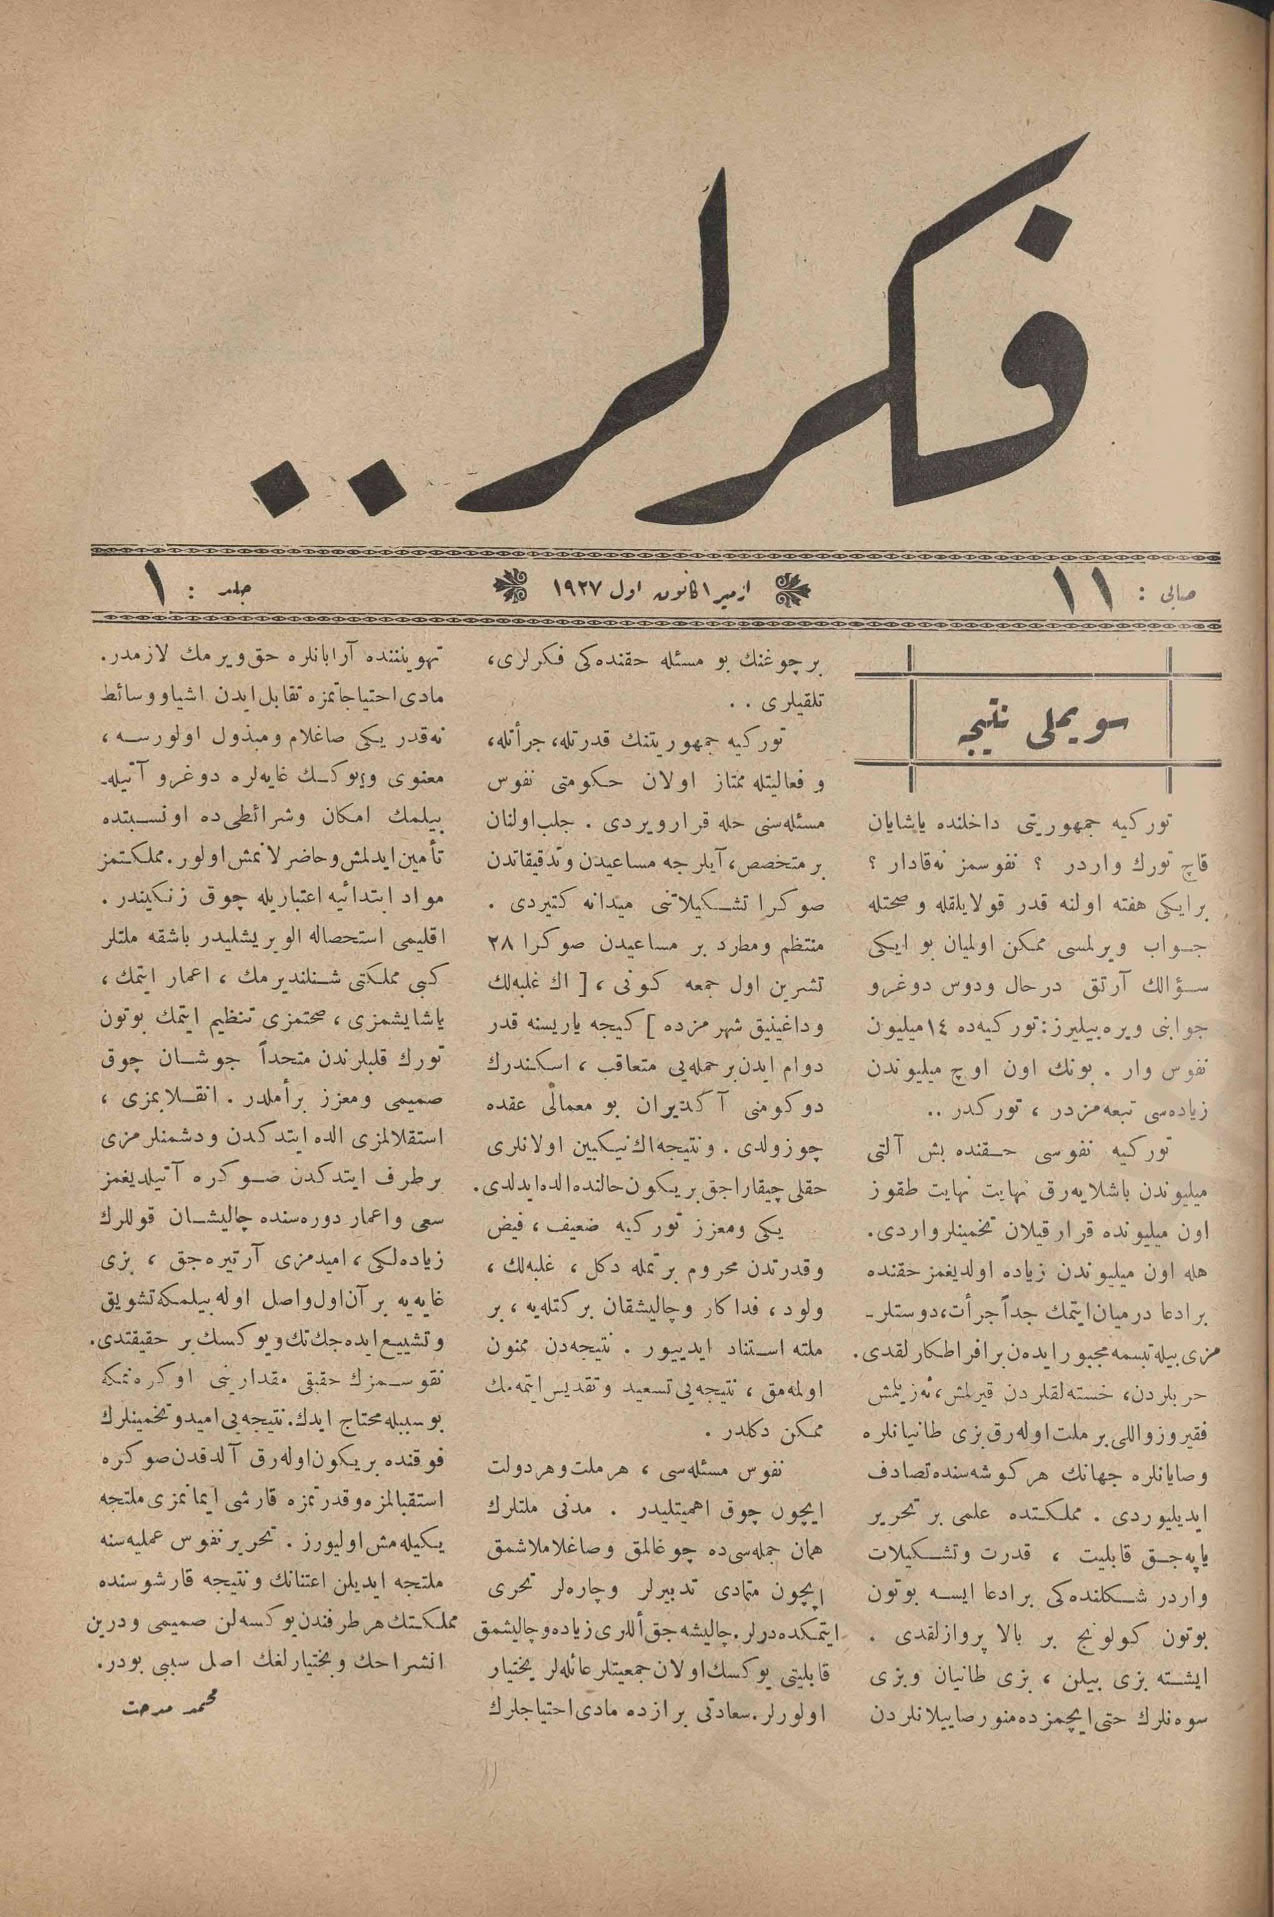 فكرلر..
صايى : ١١
ازمير ١ كانون اول ١٩٢٧
جلد : ١
سويملى نتيجه
توركيه جمهوريتى داخلنده ياشايان
قاچ تورك واردر ؟ نفوسمز نه‌قادار ؟
برايكى هفته اولنه قدر قولايلقله و صحتله
جواب ويرلمسى ممكن اولميان بو ايكى
سؤالك آرتق درحال ودوس دوغرو
جوابنى ويره‌بيليرز: توركيه‌ده ١٤ ميليون
نفوس وار . بونك اون اوچ ميليوندن
زياده‌سى تبعه‌مزدر ، توركدر ..
توركيه نفوسى حقنده بش آلتى
ميليوندن باشلايه‌رق نهايت نهايت طقوز
اون ميليونده قرار قيلان تخمينلر واردى.
هله اون ميليوندن زياده اولديغمز حقنده
برادعا درميان ايتمك جداً جرأت، دوستلر‌ـ
مزى بيله تبسمه مجبور ايده‌ن برافراطكارلقدى.
حربلردن، خسته‌لقلردن قيرلمش، نه‌زيلمش
فقير وزواللى بر ملت اوله‌رق بزى طانيانلره
وصايانلره جهانك هر كوشه‌سنده تصادف
ايديليوردى . مملكتده علمى بر تحرير
ياپه‌جق قابليت ، قدرت وتشكيلات
واردر شكلنده‌كى برادعا ايسه بوتون
بوتون كولونج بر بالا پروازلقدى .
ايشته بزى بيلن ، بزى طانيان وبزى
سوه‌نلرك حتى ايچمزده منور صاييلانلردن
بر چوغنك بو مسئله حقنده‌كى فكرلرى،
تلقيلرى ..
توركيه جمهوريتنك قدرتله، جرأتله،
و فعاليتله ممتاز اولان حكومتى نفوس
مسئله‌سنى حله قرارويردى . جلب‌اولنان
بر متخصص، آيلرجه مساعيدن وتدقيقاتدن
صوكرا تشكيلاتنى ميدانه كتيردى .
منتظم ومطرد بر مساعيدن صوكرا ٢٨
تشرين اول جمعه كونى ، [ اك غلبه‌لك
وداغينيق شهرمزده ] كيجه ياريسنه قدر
دوام ايدن بر حمله‌يى متعاقب ، اسكندرك
دوكومنى آكديران بو معمالى عقده
چوزولدى . ونتيجه اك نيكبين اولانلرى
حقلى چيقاراجق بر يكون حالنده الده ايدلدى.
يكى ومعزز توركيه ضعيف ، فيض
وقدرتدن محروم بر تمله دكل ، غلبه‌لك ،
ولود ، فداكار وچاليشقان بر كتله‌يه ، بر
ملته استناد ايدييور . نتيجه‌دن ممنون
اولمه‌مق ، نتيجه‌يى تسعيد وتقديس ايتمه‌مك
ممكن دكلدر .
نفوس مسئله‌سى ، هر ملت و هر دولت
ايچون چوق اهميتليدر . مدنى ملتلرك
همان جمله‌سى ده چوغالمق وصاغلاملاشمق
ايچون متمادى تدبيرلر وچاره‌لر تحرى
ايتمكده‌درلر. چاليشه‌جق اللرى زياده وچاليشمق
قابليتى يوكسك اولان جمعيتلر عائله‌لر بختيار
اولورلر. سعادتى برازده مادى احتياجلرك
تهويننده آرابانلره حق ويرمك لازمدر.
مادى احتياجاتمزه تقابل ايدن اشيا ووسائط
نه‌قدر يكى صاغلام ومبذول اولورسه ،
معنوى ويوكسك غايه‌لره دوغرو آتيله‌ـ
بيلمك امكان وشرائطى ده اونسبتده
تأمين ايدلمش وحاضرلانمش اولور. مملكتمز
مواد ابتدائيه اعتباريله چوق زنكيندر .
اقليمى استحصاله الويريشليدر باشقه ملتلر
كبى مملكتى شنلنديرمك ، اعمار ايتمك ،
ياشايشمزى ، صحتمزى تنظيم ايتمك بوتون
تورك قلبلرندن متحداً جوشان چوق
صميمى ومعزز برأملدر . انقلابمزى ،
استقلالمزى الده ايتدكدن ودشمنلرمزى
برطرف ايتدكدن صوكره آتيلديغمز
سعى واعمار دوره‌سنده چاليشان قوللرك
زياده‌لكى ، اميدمزى آرتيره‌جق ، بزى
غايه‌يه بر آن‌اول واصل اوله‌بيلمكه تشويق
وتشييع ايده‌جك تك ويوكسك بر حقيقتدى.
نفوسمزك حقيقى مقدارينى اوكره‌نمكه
بوسببله محتاج ايدك. نتيجه‌يى اميد وتخمينلرك
فوقنده بر يكون اوله‌رق آلدقدن صوكره
استقبالمزه وقدرتمزه قارشى ايمانمزى ملتجه
يكيله‌مش اوليورز . تحرير نفوس عمليه‌سنه
ملتجه ايديلن اعتنانك ونتيجه قارشوسنده
مملكتك هر طرفندن يوكسه‌لن صميمى ودرين
انشراحك وبختيارلغك اصل سببى بودر.
محمد مدحت